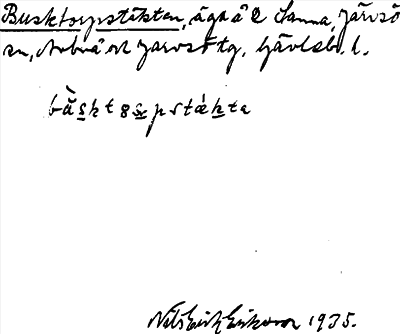 Busktorpstäkten, äga å 2 Sanna, Järvsö
sn, Arbrå och Järvsö tg, Gävlebs. l.
båskt
Nils Erik Eriksson 1935.